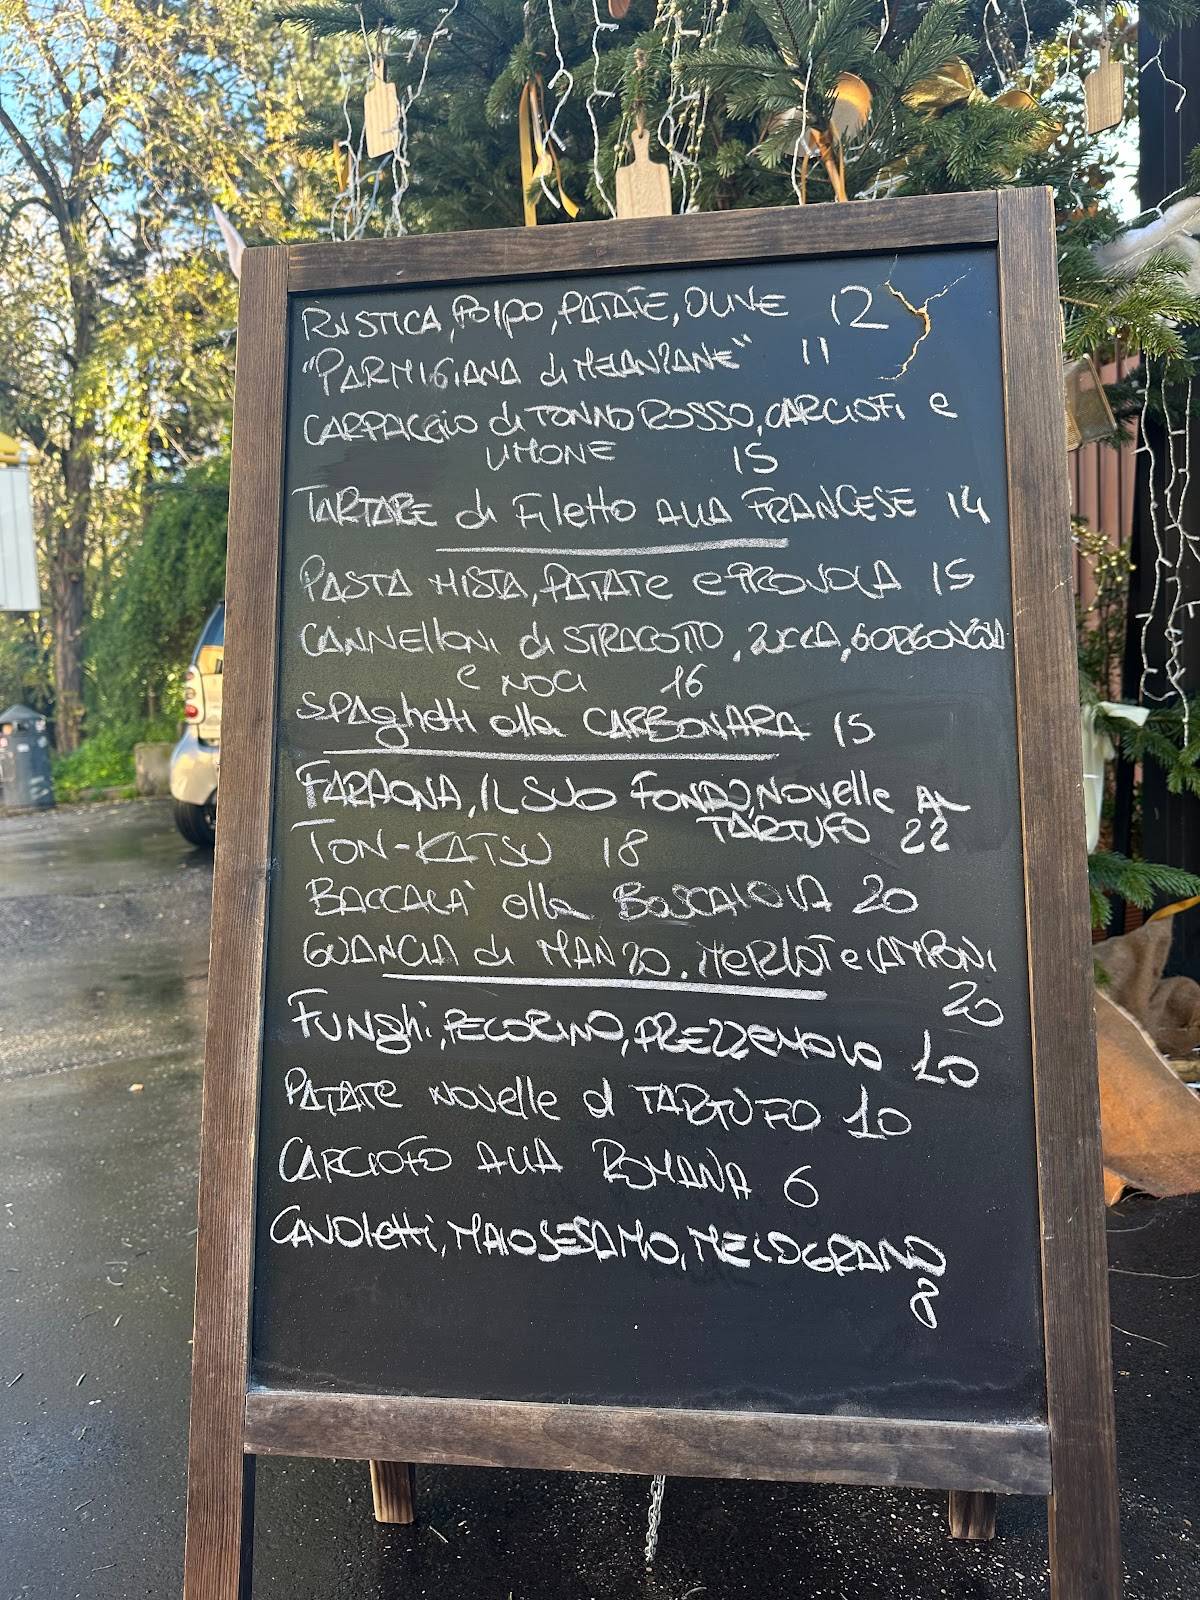 RUSTICA, POLPO, PATATE, OLIVE 12
"PARMIGIANA di MELANZANE" 11
CARPACCIO di TONNO ROSSO, CARCIOFI e
LIMONE 15
TARTARE di Filetto ALLA FRANCESE 14
PASTA MISTA, PATATE e PROVOLA 15
CANNELLONI di STRACOTTO, ZUCCA, GORGONZOLA
e NOCI 16
SPAghetti alla CARBONARA 15
FARAONA, IL SUO FONDO, NOvelle AL
TARTUFO 22
TON-KATSU 18
BACCALA' alla BOSCAIOLA 20
GUANCIA di MANZO, MERLOT e LAMPONI
20
FUNghi, PECORINO, PREZZEMOLO 10
PATATE NOVelle al TARTUFO 10
CARCIOFO ALLA ROMANA 6
CAVOLetti, MAIOSESAMO, MELOGRANO
8